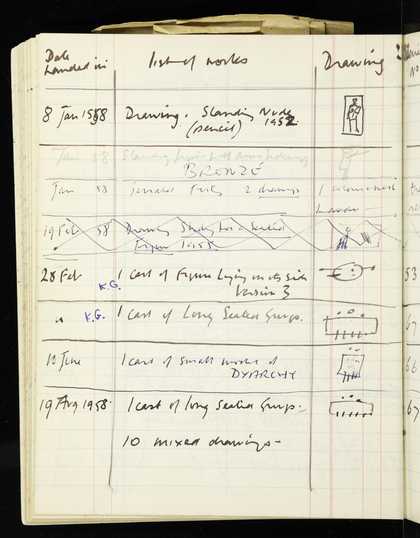 Date
Handed in
list of works
Drawing
8 Jan 1958
Drawing. Standing Nude
(pencil) 1952
Jan 58
Standing figure
BRONZE
Jan 58
Terraced 2 drawings
19 Feb 58
Drawing Study for a Seated
Figure 1955
28 Feb
K.G.
1 Cast of Figure Lying on its Side
Version 3
53
" K.G.
1 Cast of Long Seated Group.
6
12 June
1 cast of small model of
DYARCHY
66
19 Aug 1958.
1 cast of long Seated Group.-
67
10 mixed drawings-